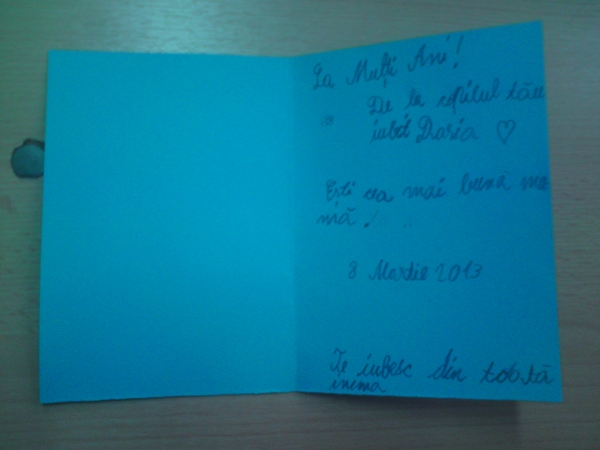 La Mulți Ani!
De la copilul tău
iubit Daria ♡
Ești cea mai bună ma
mă!
8 Martie 2013
Te iubesc din toată
inima